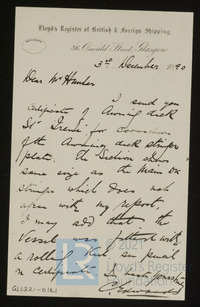 Lloyd's Register of British & Foreign Shipping.
36, Oswald Street, Glasgow
3rd December 1890
Dear Mr Hunter
I send you
Certificate of Awning deck
SS "Irene" for correction
of the Awning deck stringer
plate. The Section shows
same size as the Main dk
stringer which does not
agree with my report.
I may add that the
Vessel was fitted with
a rolling
in certificate
© 2021
Lloyd's Register
Foundation